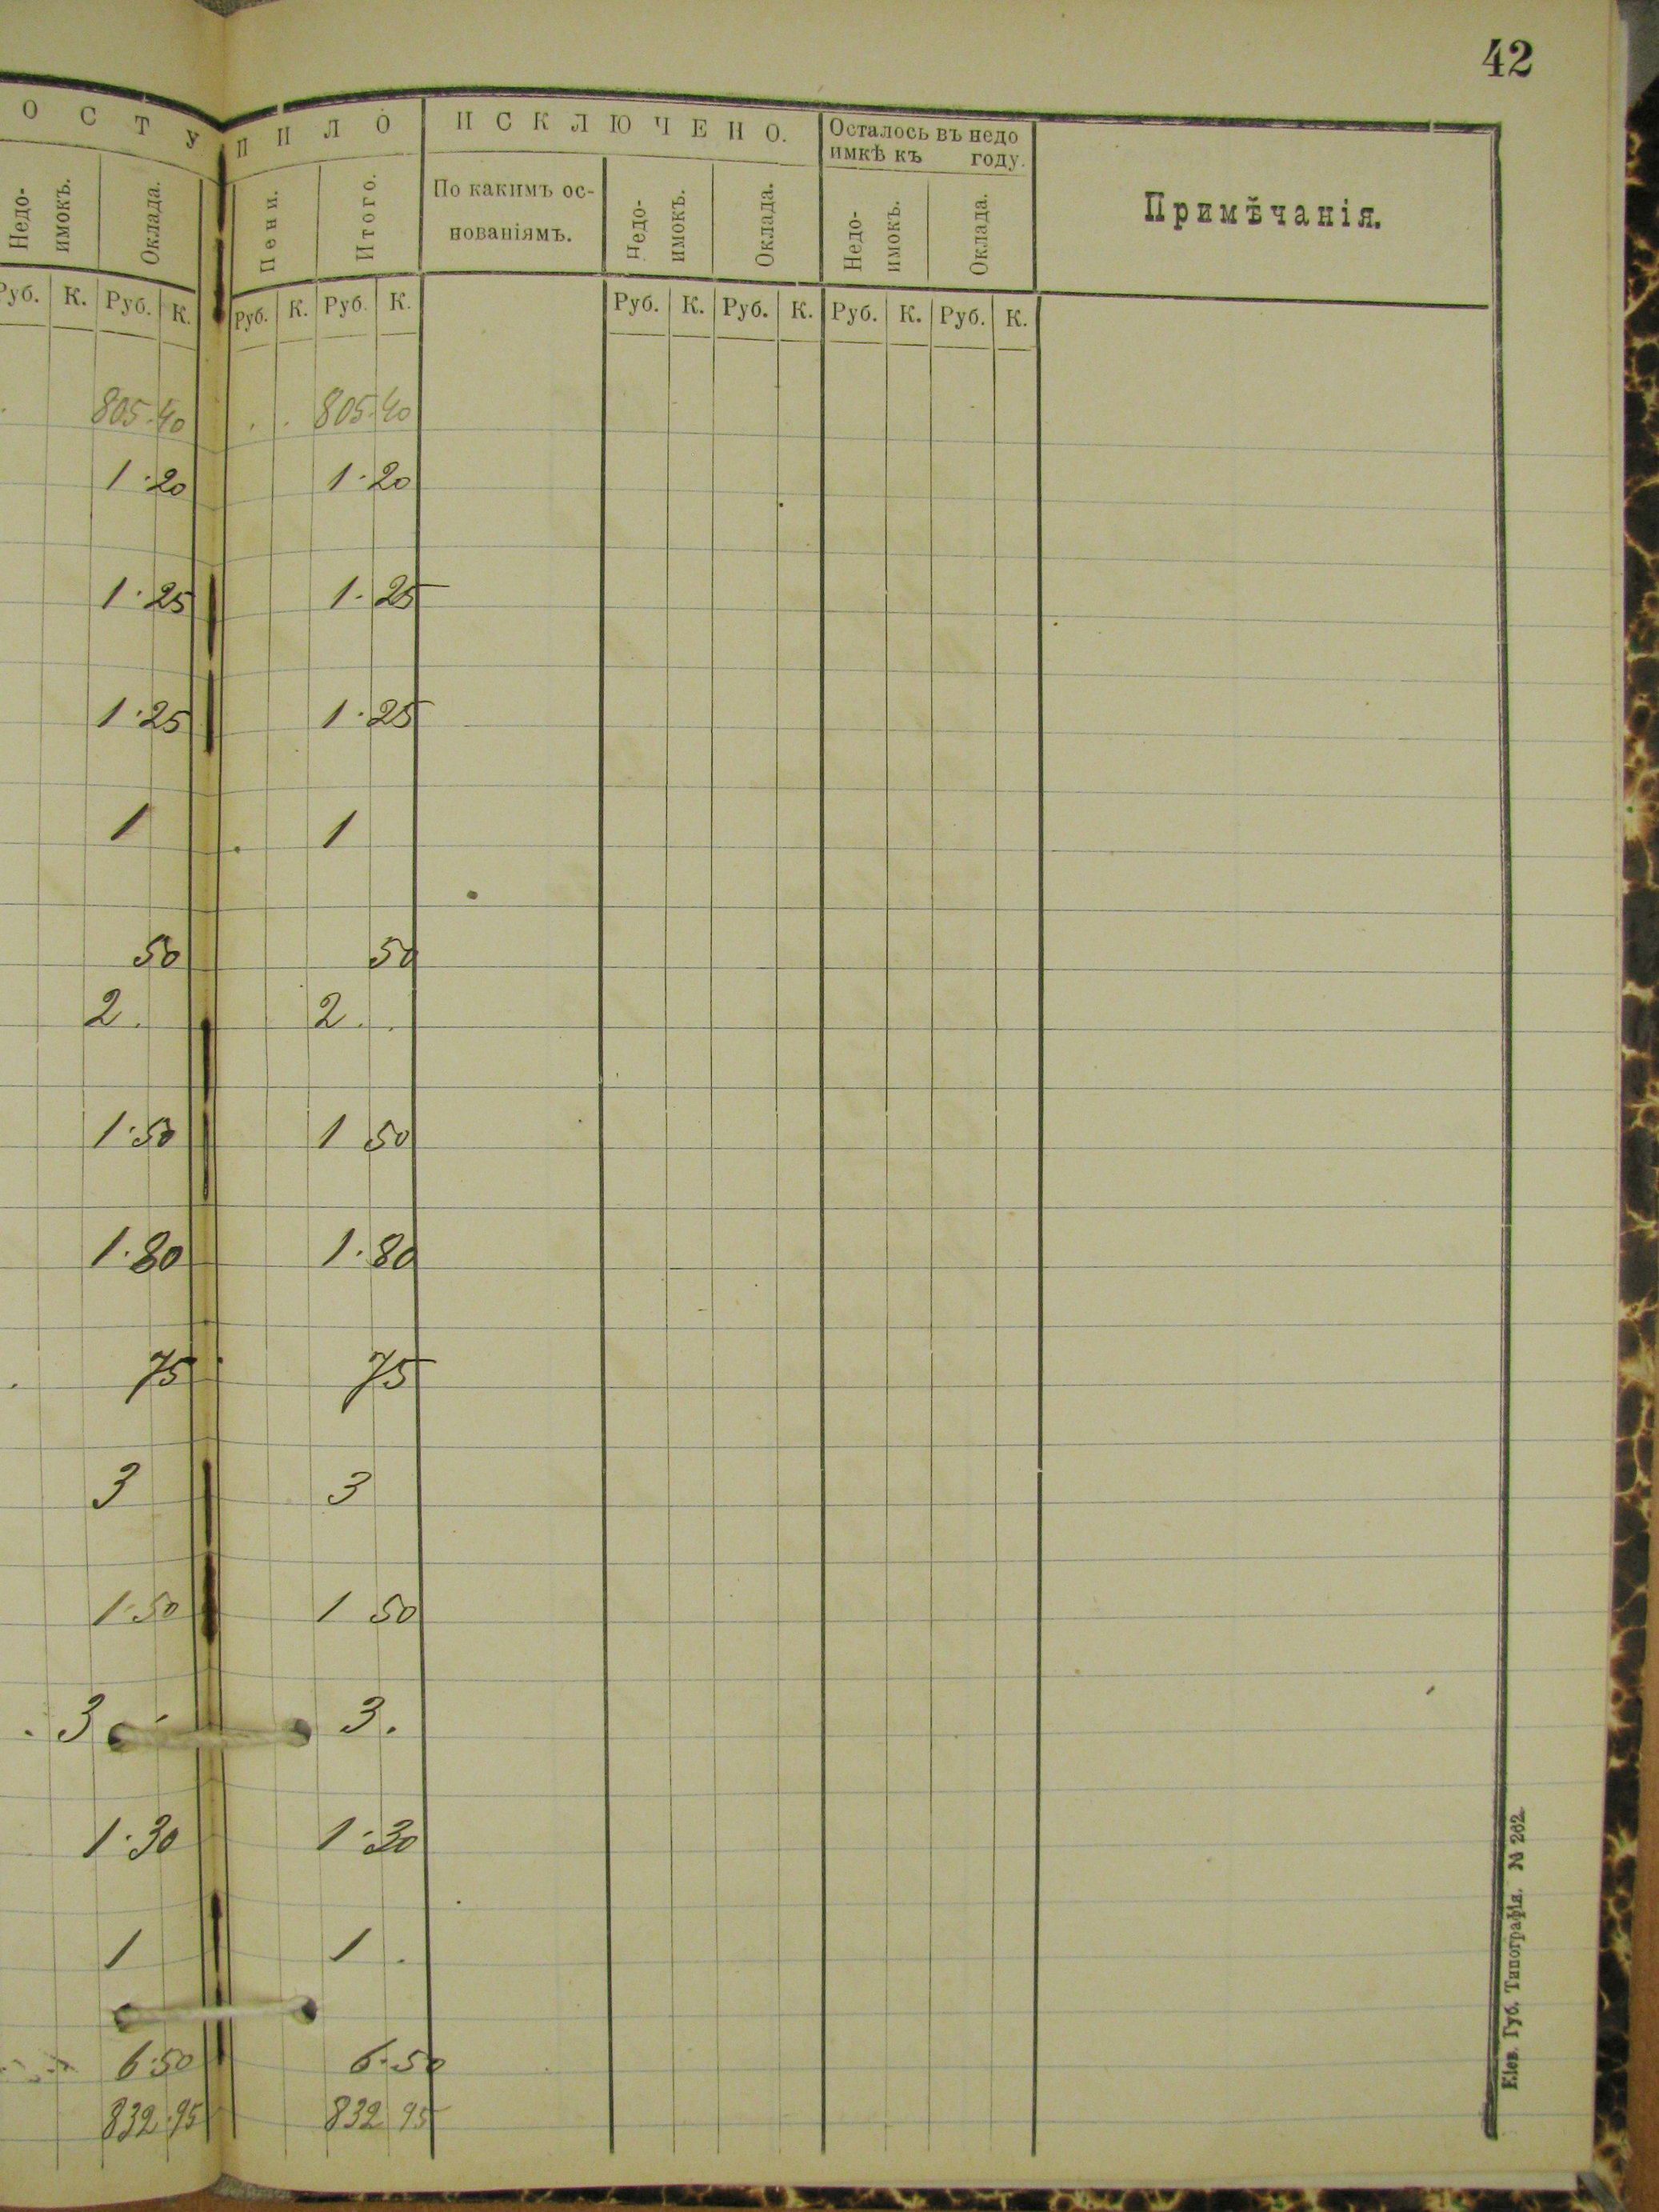 42
О С Т У П И Л О И С К Л Ю Ч Е Н О. Осталось въ недо
имкѣ къ году.
Недо-
имокъ.
Оклада.
Пени.
Итого.
По какимъ ос-
нованіямъ.
Недо-
имокъ.
Оклада.
Недо-
имокъ.
Оклада.
Примѣчанія.
Руб. К. Руб. К. Руб. К. Руб. К. Руб. К. Руб. К. Руб. К. Руб. К.
805.40 . . 805.40
1.20 1.20
1.25 1.25
1.25 1.25
1 1
50 50
2. 2. .
1.50 1 50
1.80 1.80
75 75
3 3
1.50 1 50
3 3.
1.30 1.30
1 1 .
6.50 6.50
832.95 832 95
Кіев. Губ. Типографія. № 262.